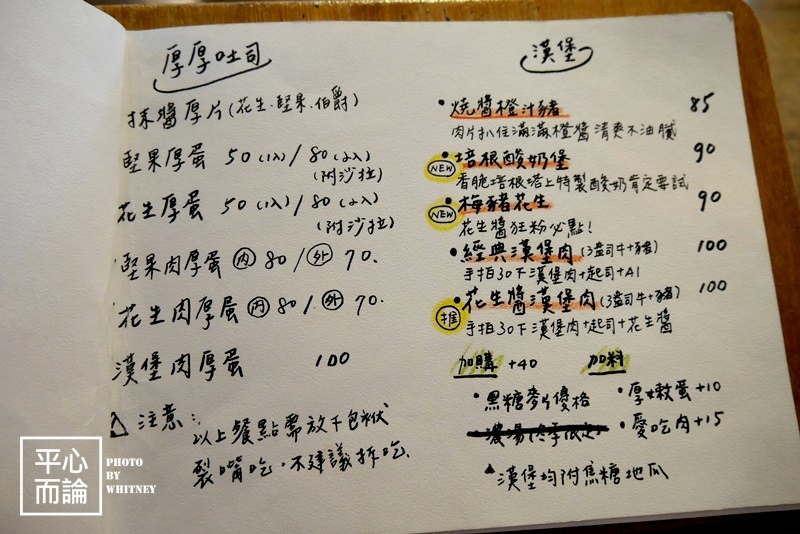 厚厚吐司
抹醬厚片(花生.堅果.伯爵)
堅果厚蛋 50(1入)/80(2入)
(附沙拉)
花生厚蛋 50(1入)/80(2入)
(附沙拉)
堅果肉厚蛋 內 80/外 70.
花生肉厚蛋 內 80/外 70.
漢堡肉厚蛋 100
注意:
以上餐點需放下包袱
裂嘴吃.不建議拆吃.
漢堡
•燒醬橙汁豬 85
肉片扒住滿滿橙醬清爽不油膩
NEW •培根酸奶堡 90
香脆培根塔上特製酸奶肯定要試
NEW •梅豬花生 90
花生醬狂粉必點!
•經典漢堡肉(3盎司牛+豬) 100
手拍30下漢堡肉+起司+A1
推 •花生醬漢堡肉(3盎司牛+豬) 100
手拍30下漢堡肉+起司+花生醬
加購 +40
•黑糖麥片優格
濃湯(冬季限定)
加料
•厚嫩蛋+10
•愛吃肉+15
▲漢堡均附焦糖地瓜
平心而論
PHOTO
BY
WHITNEY